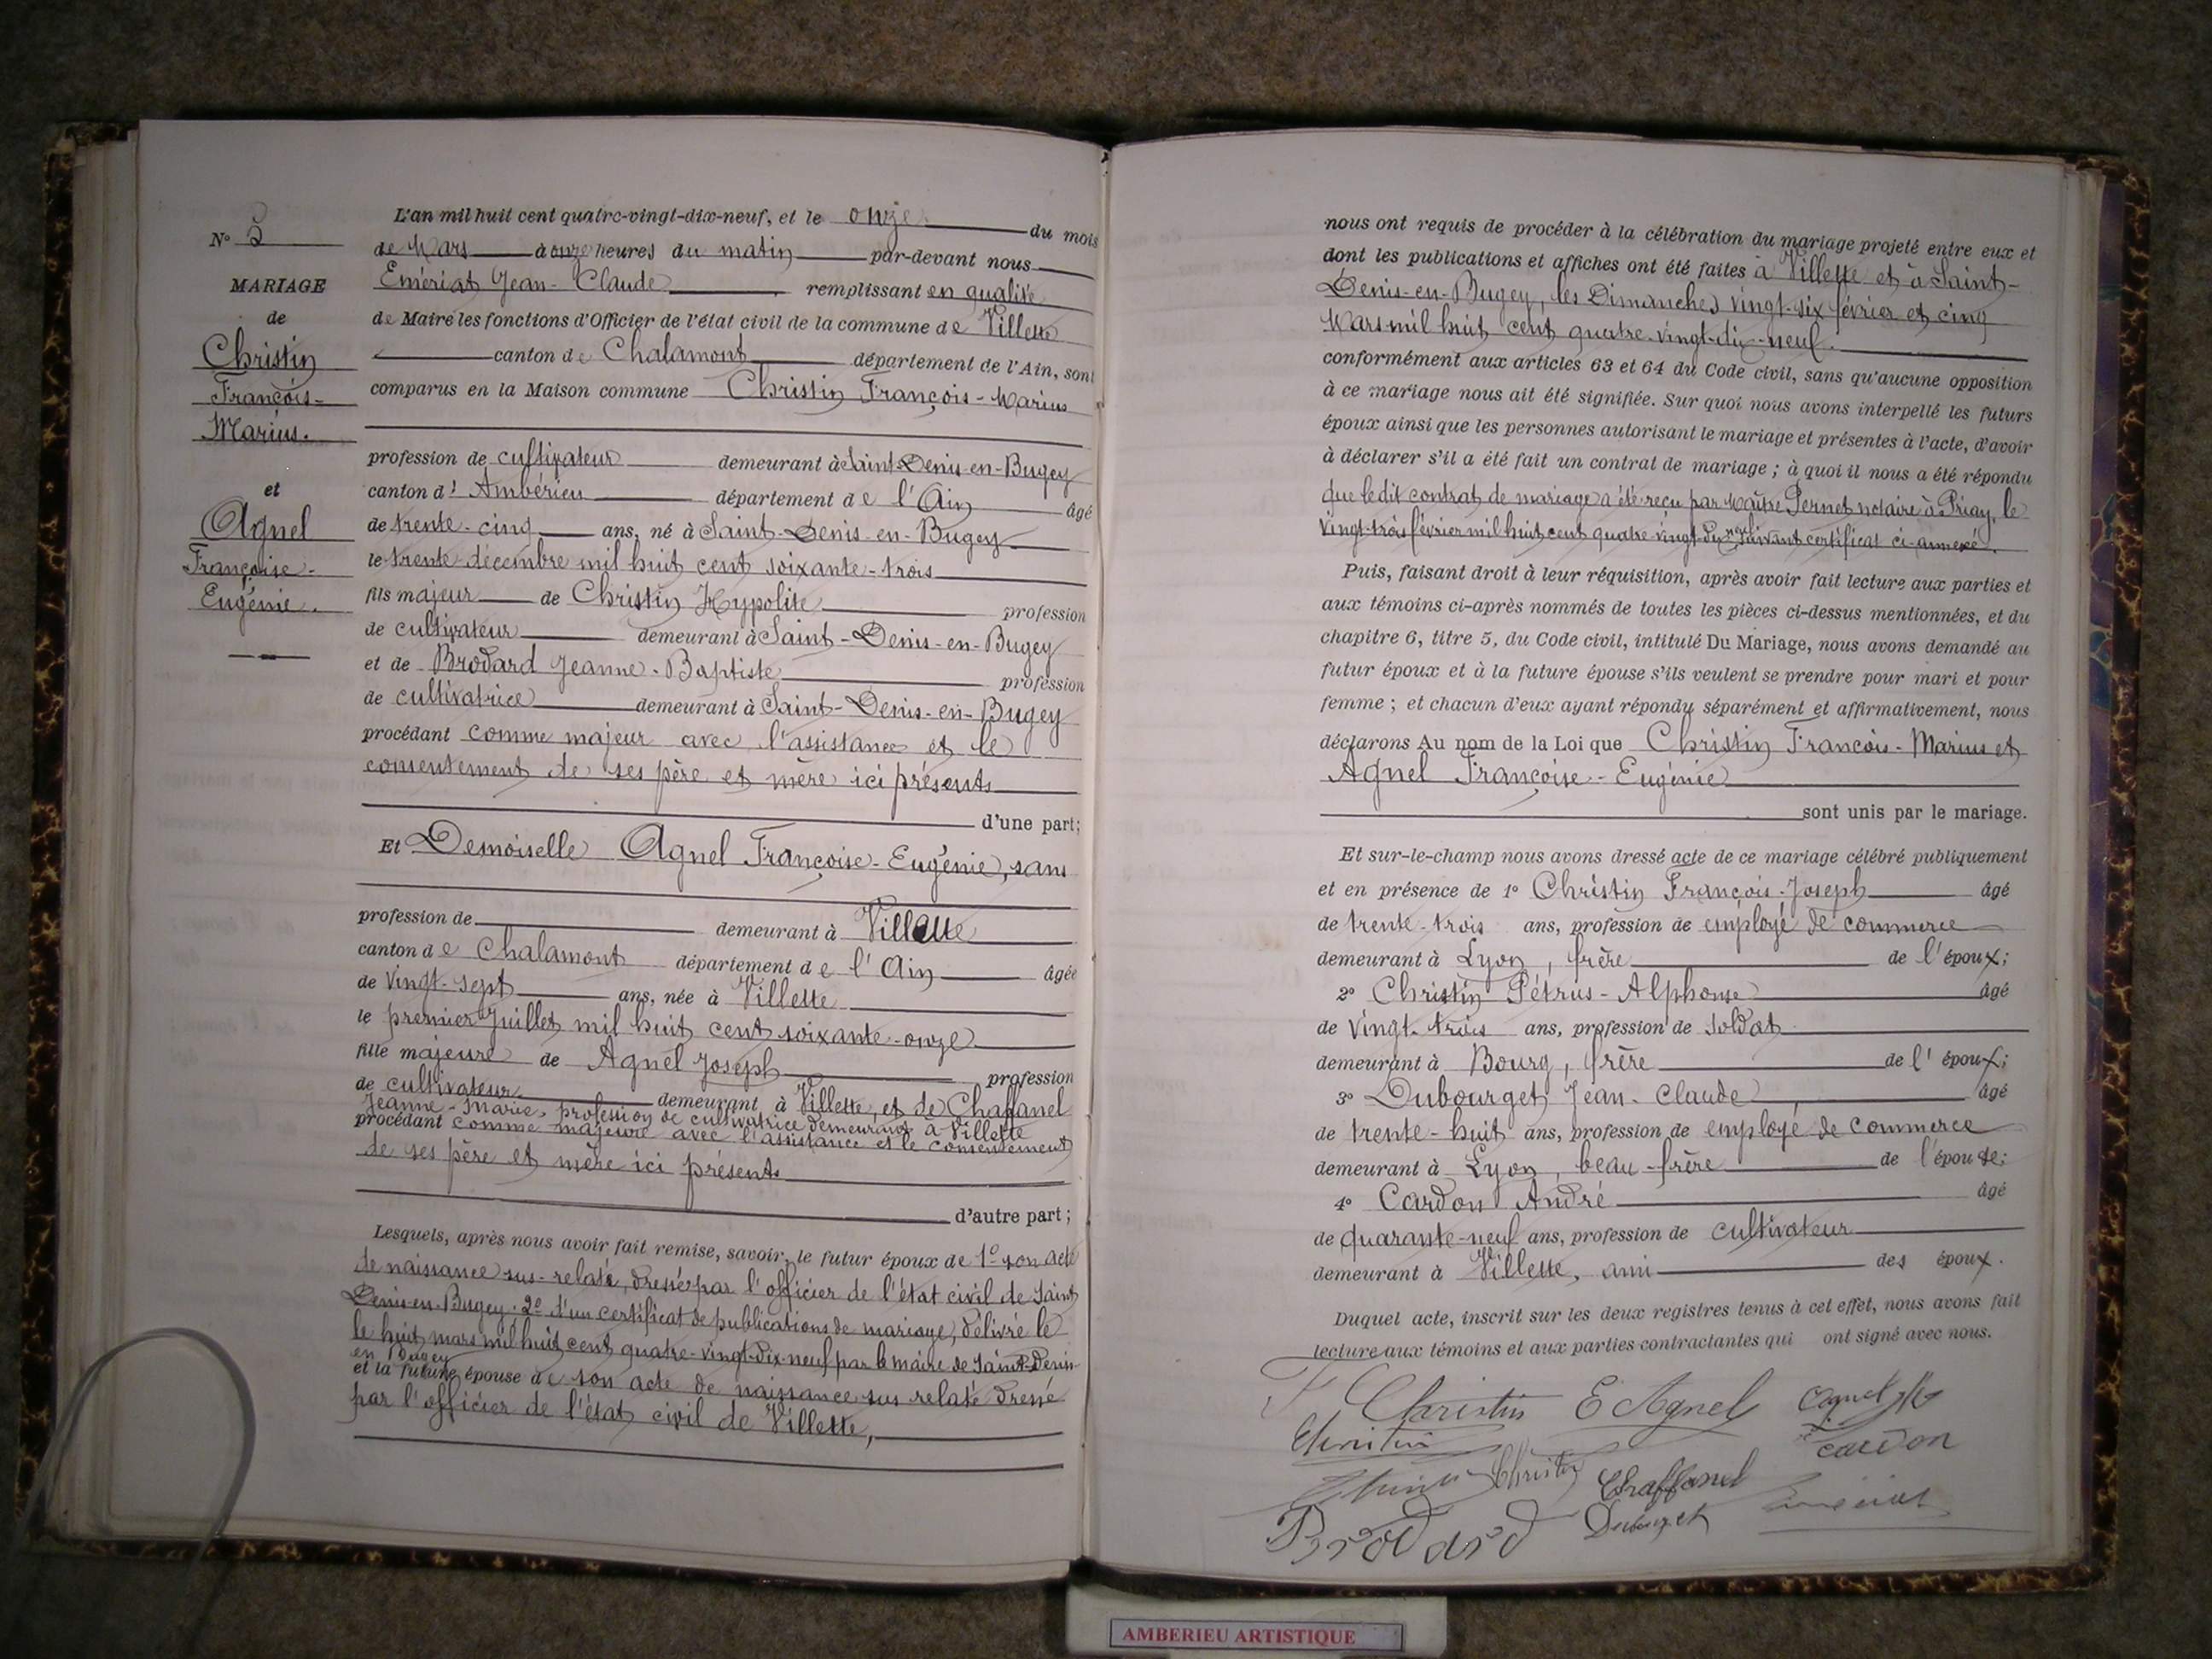 N° 5
MARIAGE
de
Christin
François-
Marius.
et
Agnel
Françoise-
Eugénie.
L'an mil huit cent quatre-vingt-dix-neuf, et le onze du mois
de Mars à onze heures du matin par-devant nous
Emériat Jean-Claude remplissant en qualité
de Maire les fonctions d'Officier de l'état civil de la commune de Villette
canton de Chalamont département de l'Ain, sont
comparus en la Maison commune Christin François-Marius
profession de cultivateur demeurant à Saint-Denis-en-Bugey
canton d' Ambérieu département de l'Ain âgé
de trente-cinq ans, né à Saint-Denis-en-Bugey
le trente décembre mil huit cent soixante-trois
fils majeur de Christin Hypolite profession
de cultivateur demeurant à Saint-Denis-en-Bugey
et de Brodard Jeanne-Baptiste profession
de cultivatrice demeurant à Saint-Denis-en-Bugey
procédant comme majeur avec l'assistance et le
consentement de ses père et mère ici présents
d'une part;
Et Demoiselle Agnel Françoise-Eugénie, sans
profession de demeurant à Villette
canton de Chalamont département de l'Ain âgée
de vingt-sept ans, née à Villette
le premier Juillet mil huit cent soixante-onze
fille majeure de Agnel Joseph profession
de cultivateur demeurant à Villette, et de Chaffanel
Jeanne-Marie, profession de cultivatrice demeurant à Villette
procédant comme majeure avec l'assistance et le consentement
de ses père et mère ici présents
d'autre part;
Lesquels, après nous avoir fait remise, savoir, le futur époux de 1° son acte
de naissance sus-relaté, dressé par l'officier de l'état civil de Saint
Denis-en-Bugey; 2° d'un certificat de publications de mariage, délivré le
le huit mars mil huit cent quatre-vingt-dix-neuf par le maire de Saint-Denis-
en Bugey
et la future épouse de son acte de naissance sus relaté dressé
par l'officier de l'état civil de Villette,
nous ont requis de procéder à la célébration du mariage projeté entre eux et
dont les publications et affiches ont été faites à Villette et à Saint-
Denis-en-Bugey, les Dimanches vingt-six février et cinq
Mars mil huit cent quatre-vingt-dix-neuf.
conformément aux articles 63 et 64 du Code civil, sans qu'aucune opposition
à ce mariage nous ait été signifiée. Sur quoi nous avons interpellé les futurs
époux ainsi que les personnes autorisant le mariage et présentes à l'acte, d'avoir
à déclarer s'il a été fait un contrat de mariage ; à quoi il nous a été répondu
que le dit contrat de mariage a été reçu par Maître Pernet notaire à Priay, le
vingt-trois février mil huit cent quatre-vingt-dix neuf suivant certificat ci-annexé.
Puis, faisant droit à leur réquisition, après avoir fait lecture aux parties et
aux témoins ci-après nommés de toutes les pièces ci-dessus mentionnées, et du
chapitre 6, titre 5, du Code civil, intitulé Du Mariage, nous avons demandé au
futur époux et à la future épouse s'ils veulent se prendre pour mari et pour
femme ; et chacun d'eux ayant répondu séparément et affirmativement, nous
déclarons Au nom de la Loi que Christin François-Marius et
Agnel Françoise-Eugénie
sont unis par le mariage.
Et sur-le-champ nous avons dressé acte de ce mariage célébré publiquement
et en présence de 1° Christin François-Joseph âgé
de trente-trois ans, profession de employé de commerce
demeurant à Lyon, frère de l'époux;
2° Christin Pétrus-Alphonse âgé
de vingt-trois ans, profession de soldat
demeurant à Bourg, frère de l'époux;
3° Dubourget Jean-Claude âgé
de trente-huit ans, profession de employé de commerce
demeurant à Lyon, beau-frère de l'épouse;
4° Cardon André âgé
de quarante-neuf ans, profession de cultivateur
demeurant à Villette, ami des époux.
Duquel acte, inscrit sur les deux registres tenus à cet effet, nous avons fait
lecture aux témoins et aux parties contractantes qui ont signé avec nous.
F Christin E Agnel Agnel
Christin Cardon
Christin Chaffanel
Brodard Dubourget Emériat
AMBERIEU ARTISTIQUE